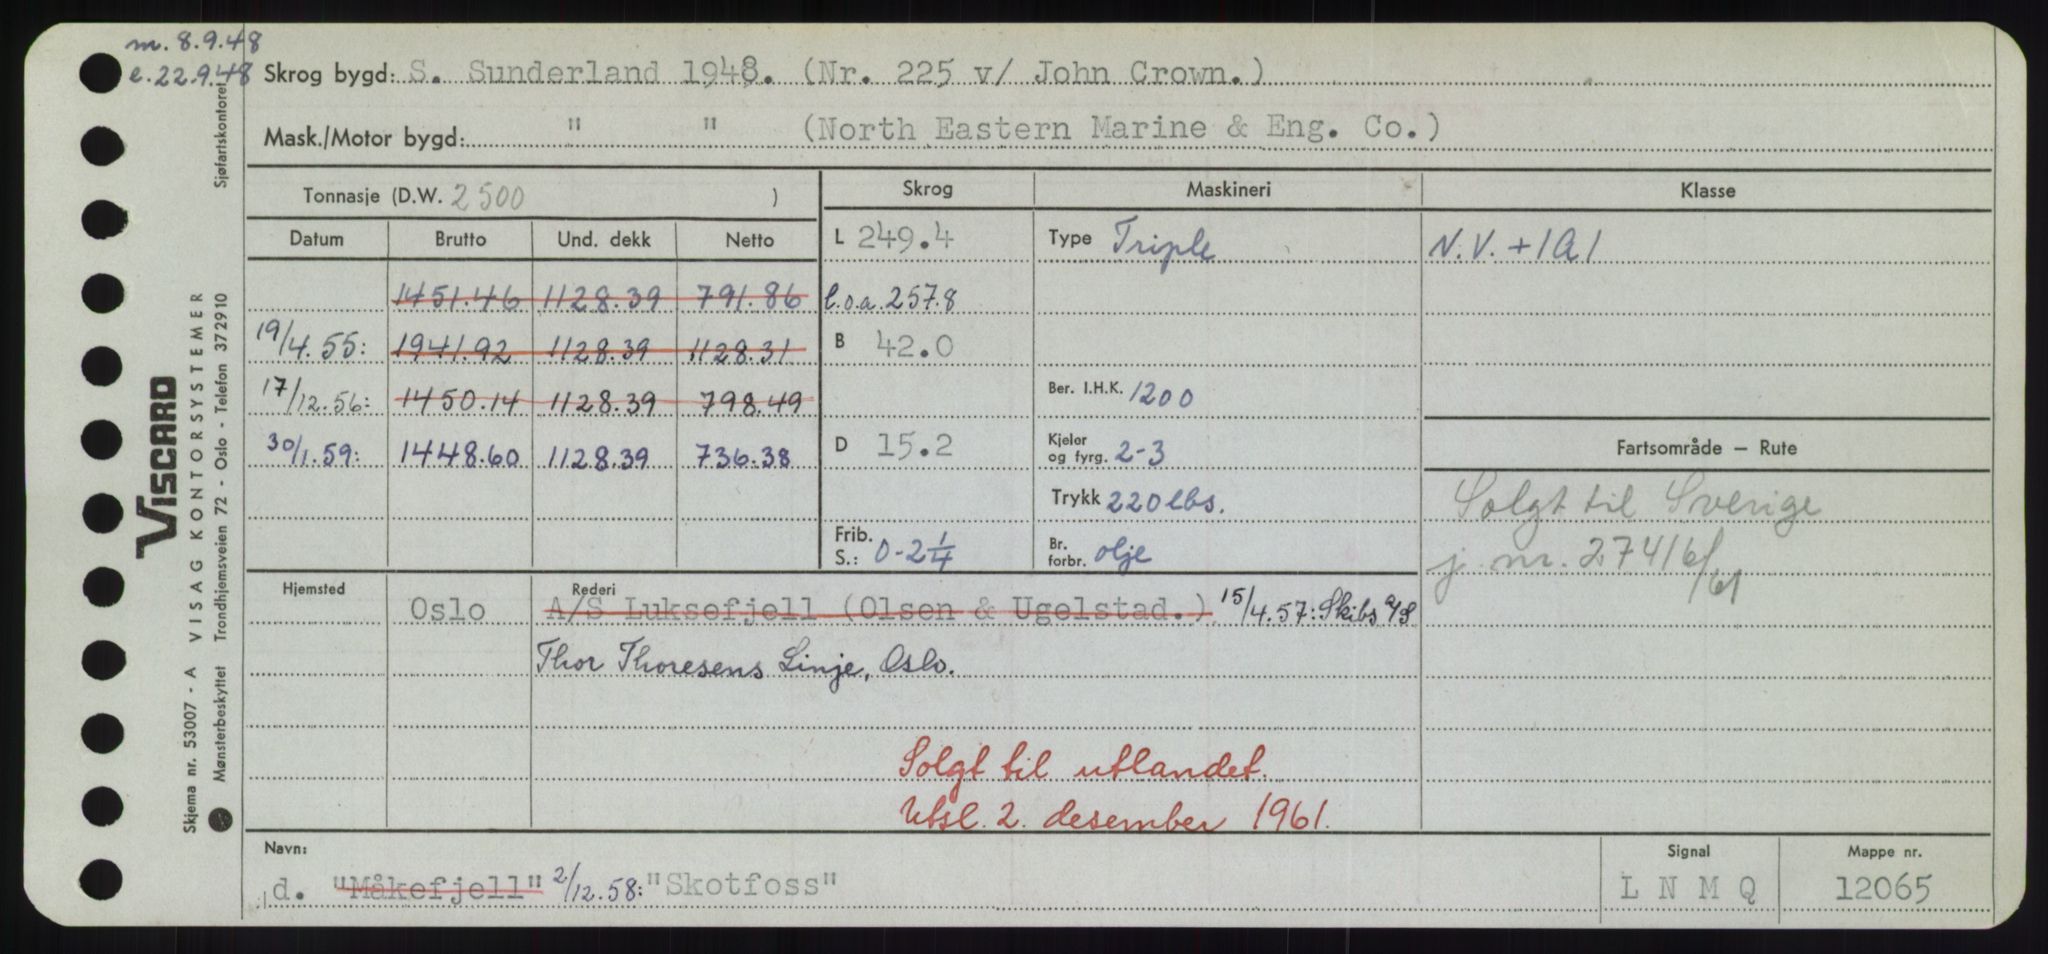 m. 8.9.48
e. 22.9.48
Skrog bygd: S. Sunderland 1948. (Nr. 225 v/ John Crown.)
Mask./Motor bygd: " " (North Eastern Marine & Eng. Co.)
Tonnasje (D.W. 2500 )
Skrog Maskineri Klasse
Datum Brutto Und. dekk Netto
L 249.4 Type Triple N.V. +1A1
1451.46 1128.39 791.86 l.o.a. 257.8
19/4.55: 1941.92 1128.39 1128.31 B 42.0
17/12.56: 1450.14 1128.39 798.49 Ber. I.H.K. 1200
30/1.59: 1448.60 1128.39 736.38 D 15.2 Kjeler og fyrg. 2-3
Fartsområde — Rute
Trykk 220 lbs. Solgt til Sverige
Frib. S.: 0-2 1/4 Br. forbr. olje j. nr. 27416/61
Hjemsted Rederi
Oslo A/S Luksefjell (Olsen & Ugelstad.) 15/4.57: Skibs a/s
Thor Thoresens Linje, Oslo.
Solgt til utlandet.
Utsl. 2. desember 1961.
Navn: Signal Mappe nr.
d. "Måkefjell" 2/12.58: "Skotfoss" L N M Q 12065
Skjema nr. 53007 - A VISAG KONTORSYSTEMER Sjøfartskontoret
Mønsterbeskyttet Trondhjemsveien 72 - Oslo - Telefon 372910
VISCARD